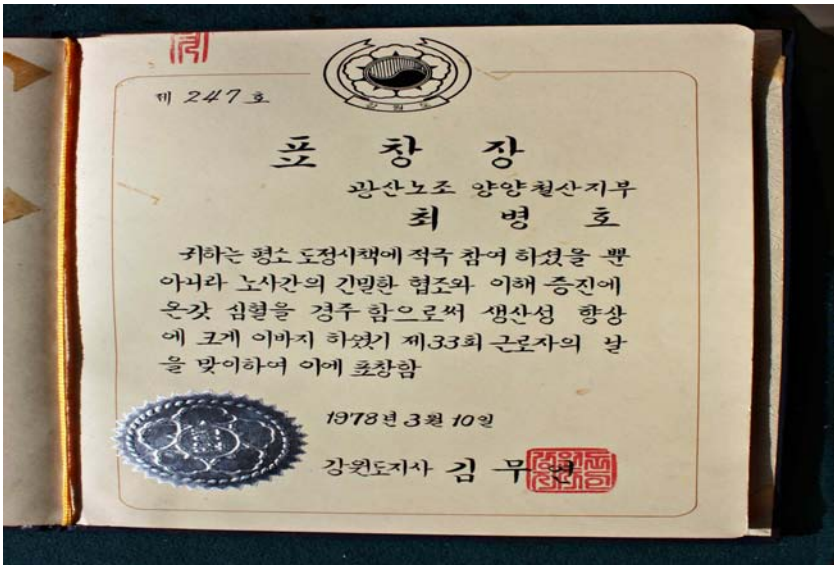 강원도
제 247 호
표 창 장
광산노조 양양철산지부
최 병 호
귀하는 평소 도정시책에 적극 참여 하셨을 뿐
아니라 노사간의 긴밀한 협조와 이해 증진에
온갖 심혈을 경주 함으로써 생산성 향상
에 크게 이바지 하였기 제33회 근로자의 날
을 맞이하여 이에 표창함
1978년 3월 10일
강원도지사 김 무 연